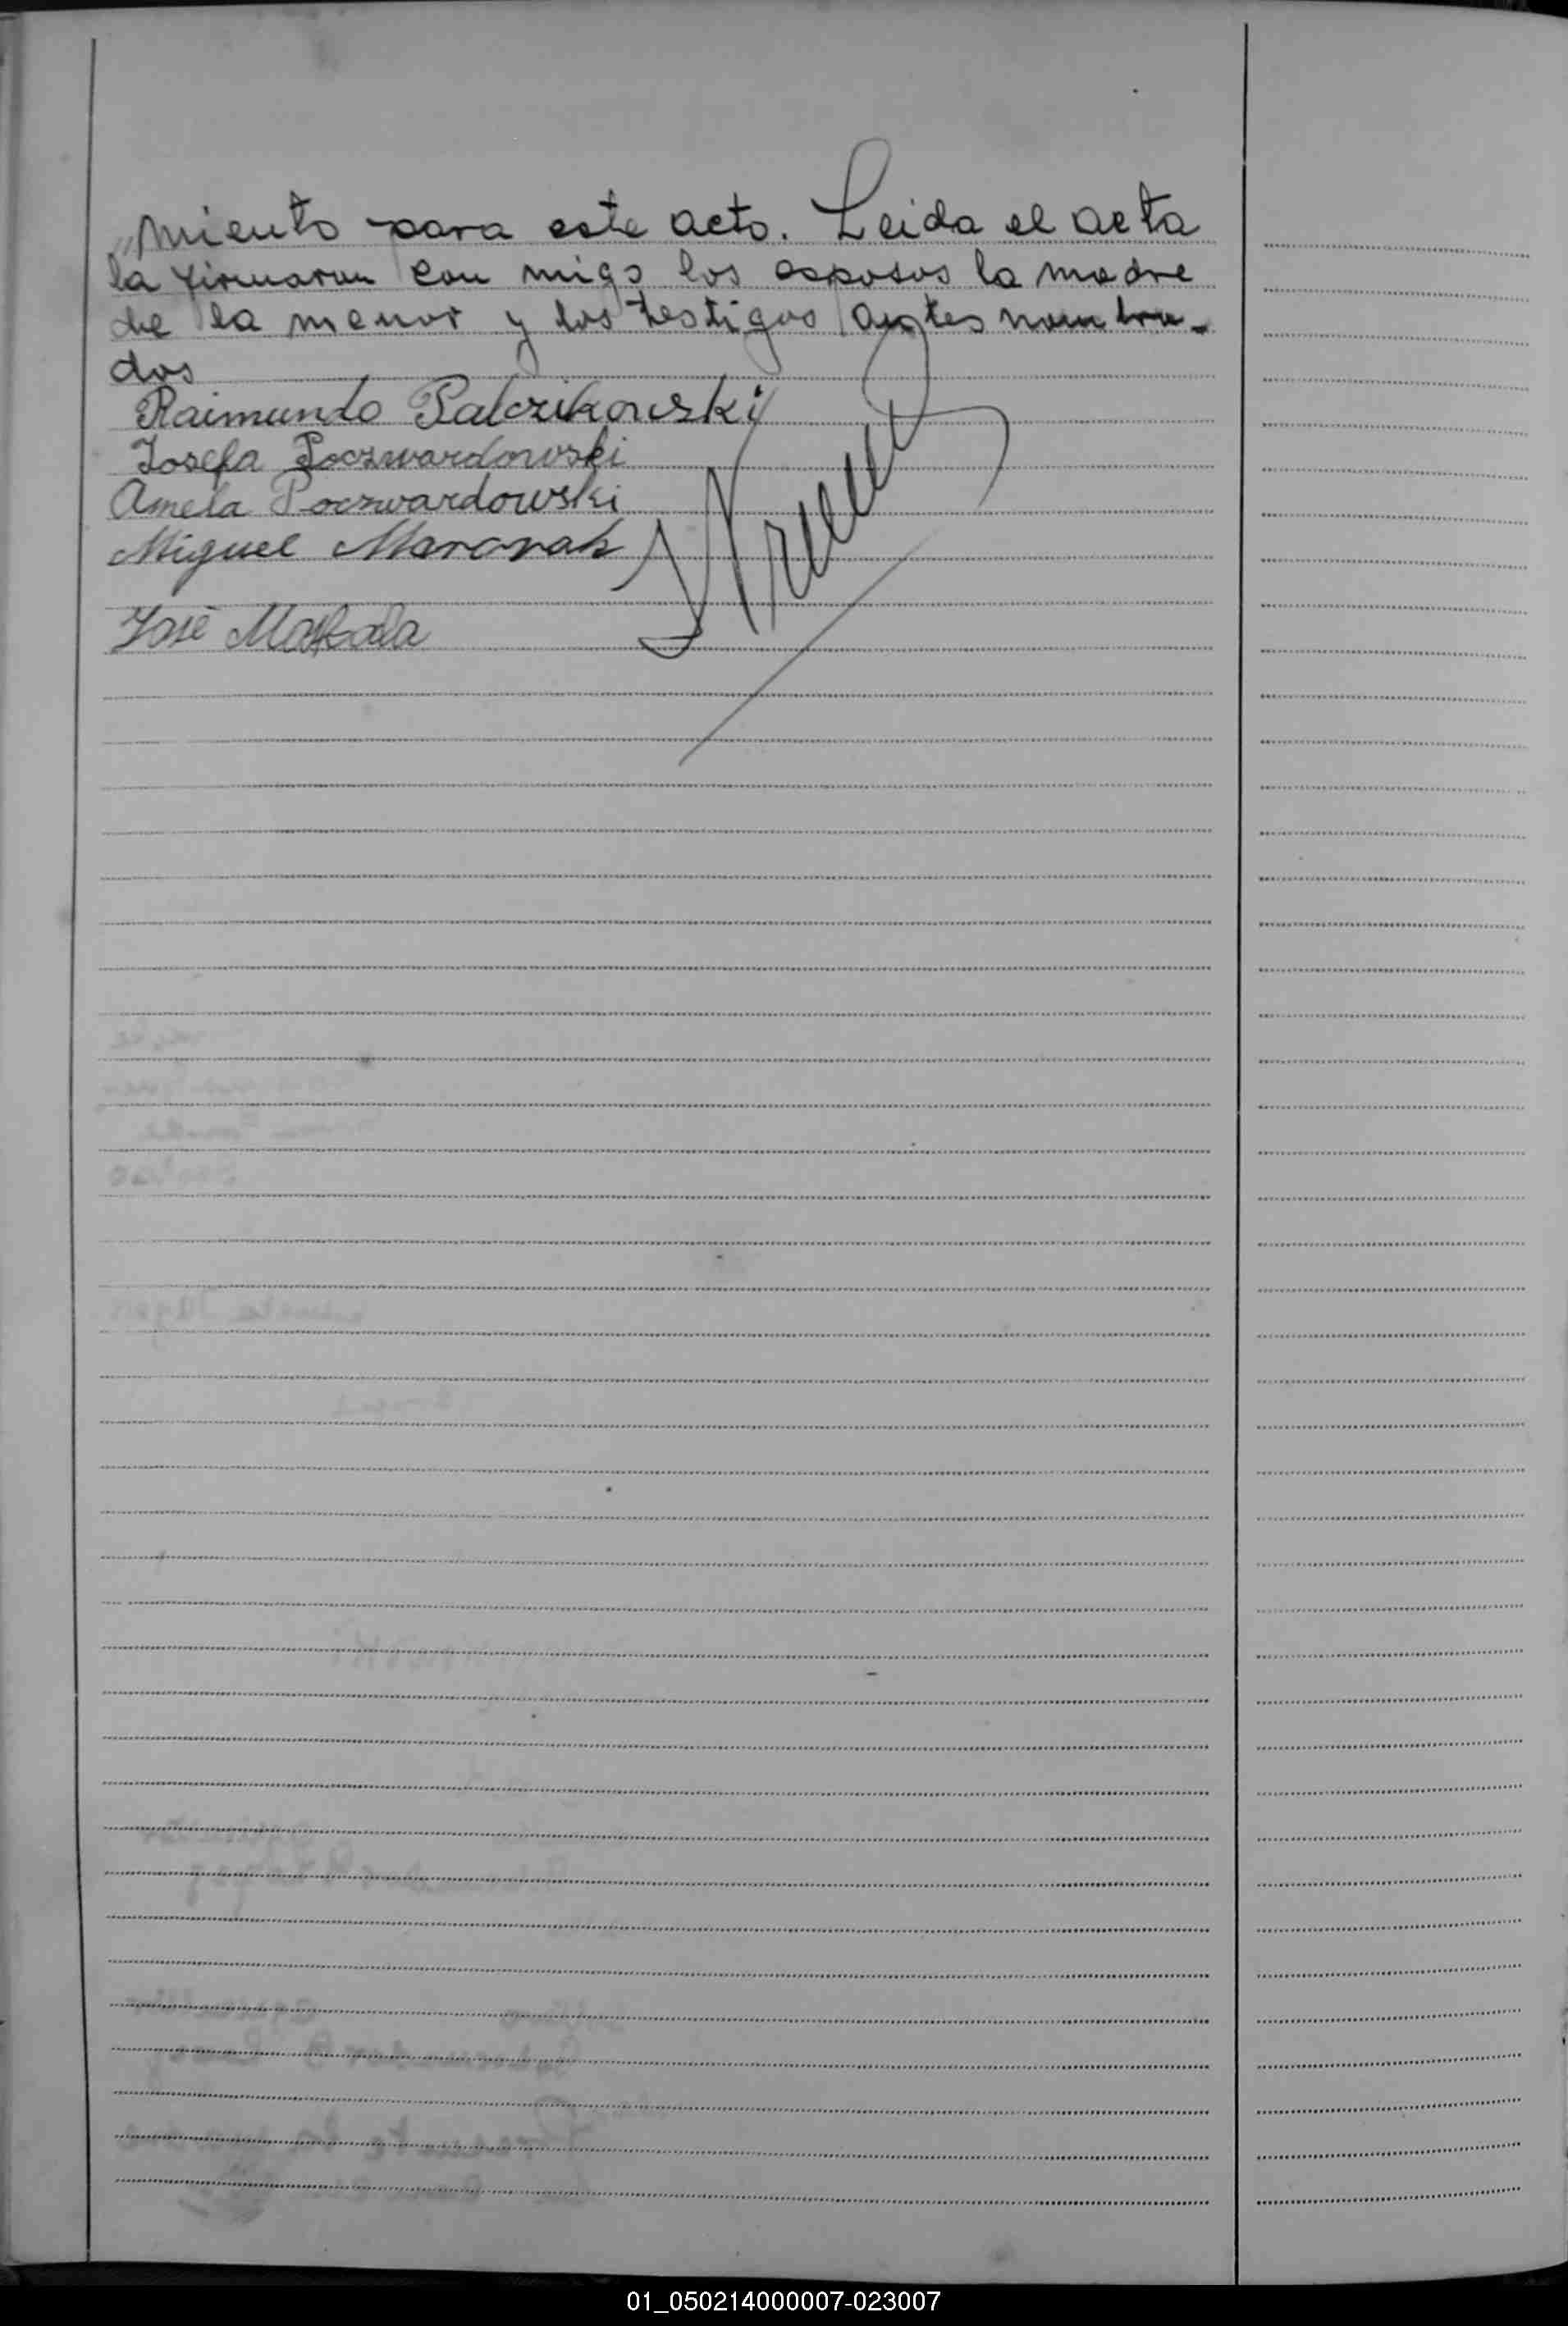 miento para este acto. Leida el acta
la firmaron con migo los esposos la madre
de la menor y los testigos antes nombra-
dos
Raimundo Palczikowski
Josefa Poczwardowski
Amela Poczwardowski
Miguel Marczak
José
01_050214000007-023007